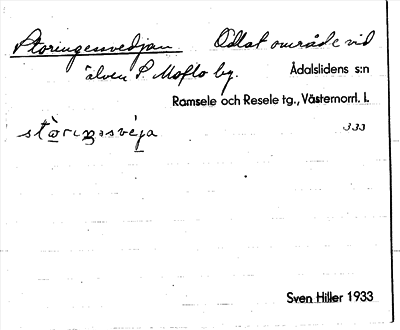 Storingesvedjan Odlat område vid
älven S. Moflo by. Ådalslidens s:n
Ramsele och Resele tg., Västernorrl. l.
333
Sven Hiller 1933